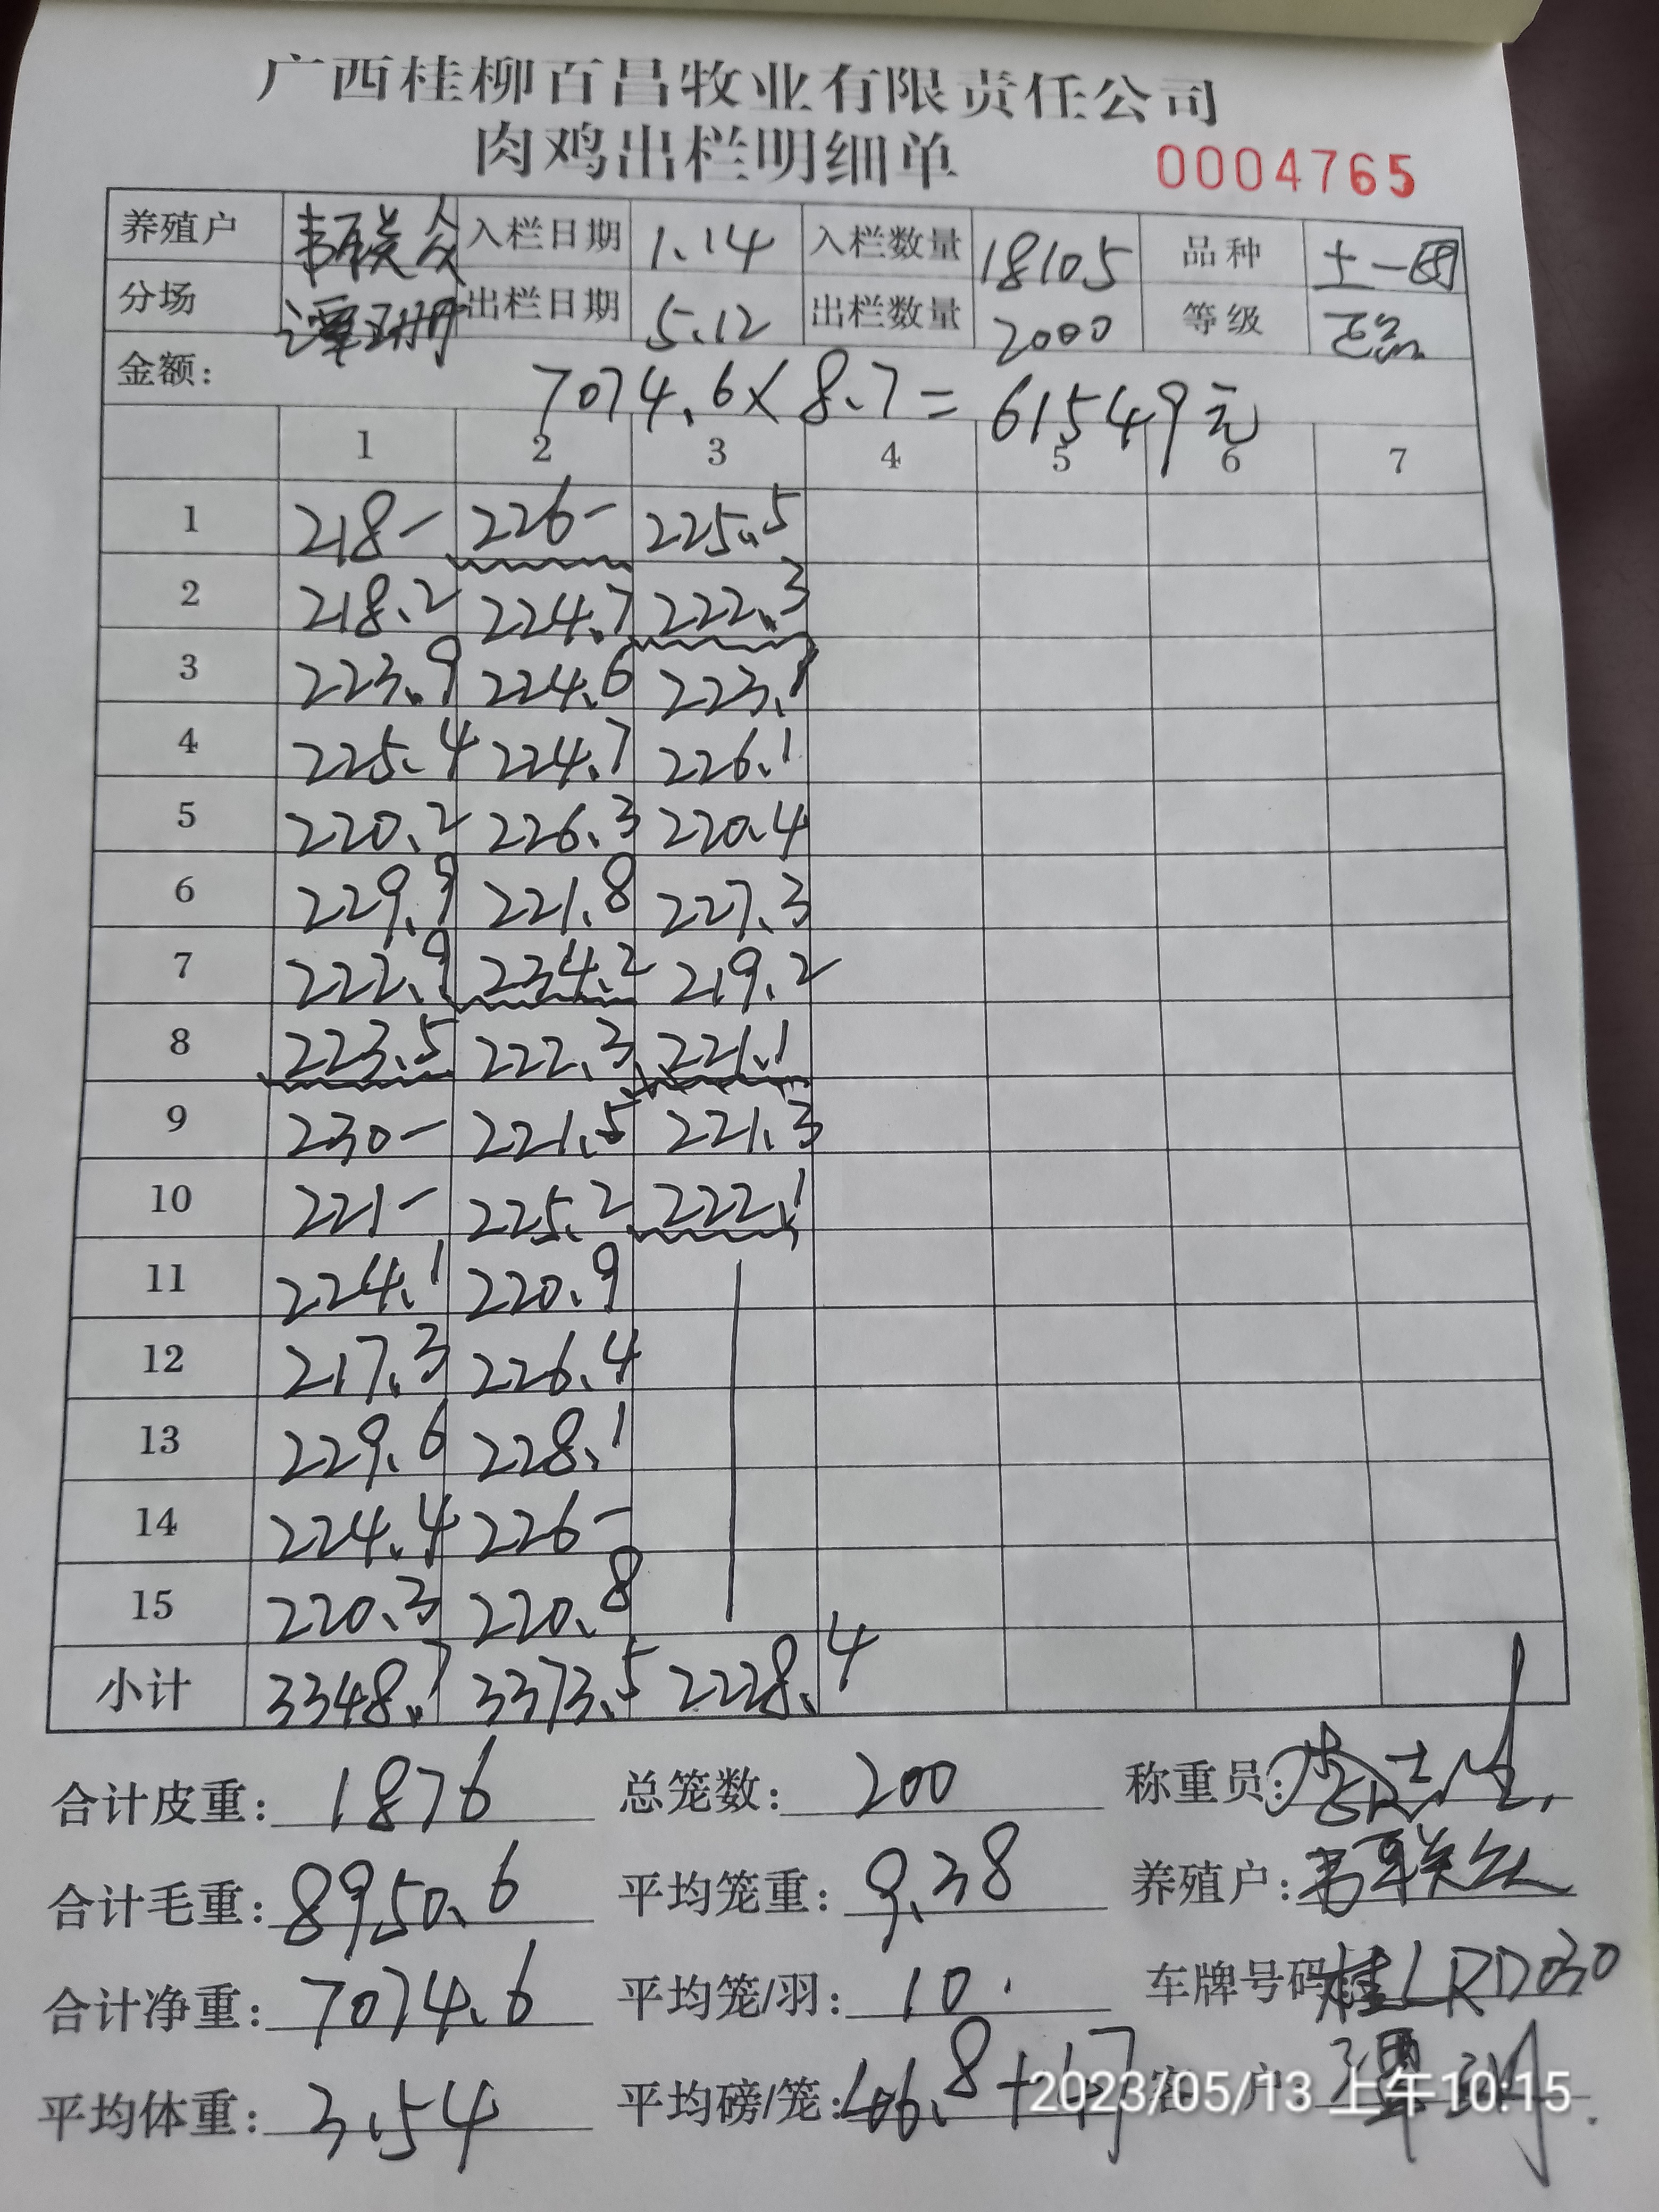 广西桂柳百昌牧业有限责任公司
肉鸡出栏明细单 0004765
养殖户 韦联众 入栏日期 1.14 入栏数量 18105 品种 土一
分场 谭 出栏日期 5.12 出栏数量 2000 等级 正
金额: 7074.6×8.7=61549元
1 2 3 4 5 6 7
1 218- 226- 225.5
2 218.2 224.7 222.3
3 223.9 224.6 223.1
4 225.4 224.7 226.1
5 220.2 226.3 220.4
6 229.9 221.8 227.3
7 222.9 234.2 219.2
8 223.5 222.3 221.1
9 230- 221.5 221.3
10 221- 225.2 222.1
11 224.1 220.9
12 217.3 226.4
13 229.6 228.1
14 224.4 226-
15 220.3 220.8
小计 3348.7 3373.5 2228.4
合计皮重: 1876 总笼数: 200 称重员:
合计毛重: 8950.6 平均笼重: 9.38 养殖户: 韦联众
合计净重: 7074.6 平均笼/羽: 10. 车牌号码 桂LRD030
平均体重: 3.54 平均磅/笼: 客户 谭
2023/05/13 上午10:15